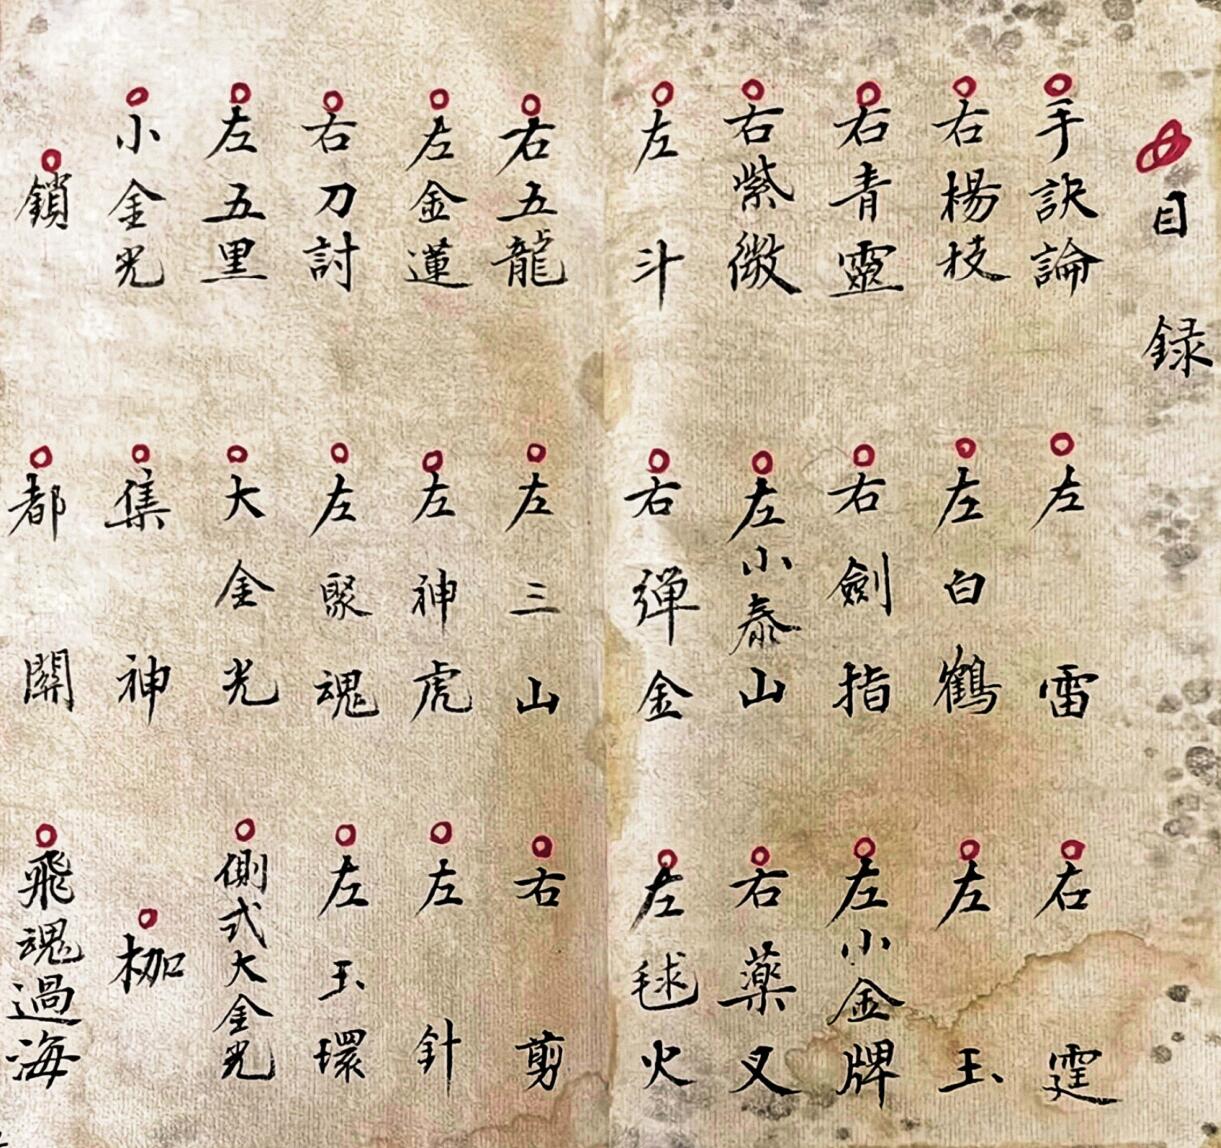 目録
手訣論 左雷 右霆
右楊枝 左白鶴 左玉
右青靈 右劍指 左小金牌
右紫微 左小泰山 右薬叉
左斗 右彈金 左毬火
右五龍 左三山 右剪
左金蓮 左神虎 左針
右刀討 左聚魂 左玉環
左五里 大金光 側式大金光
小金光 集神 枷
鎖 都關 飛魂過海